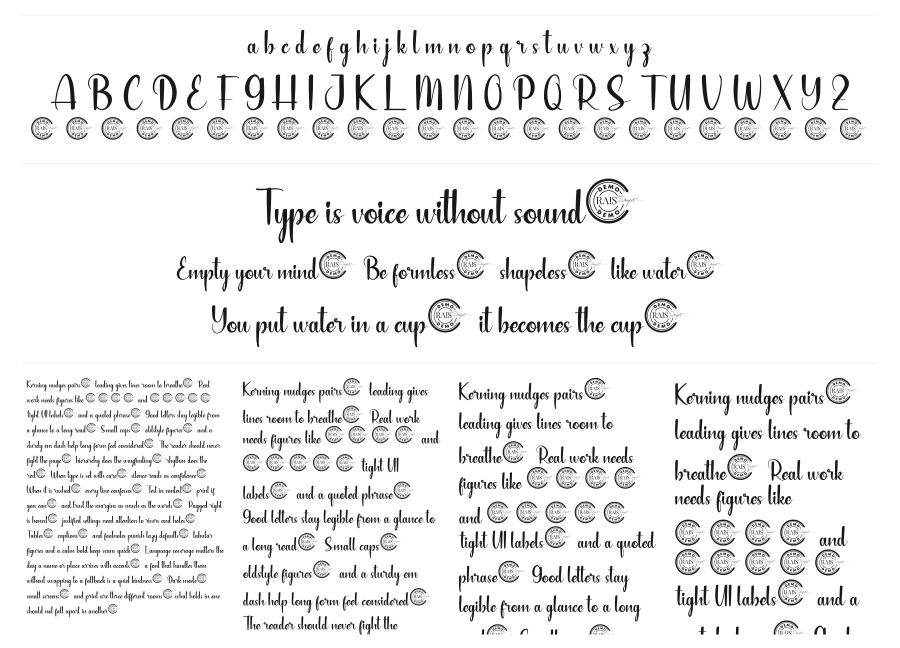 a b c d e f g h i j k l m n o p q r s t u v w x y z
A B C D E F G H I J K L M N O P Q R S T U V W X Y Z
Type is voice without sound
Empty your mind Be formless shapeless like water
You put water in a cup it becomes the cup
Kerning nudges pairs leading gives lines room to breathe Real
work needs figures like and
tight UI labels and a quoted phrase Good letters stay legible from
a glance to a long read Small caps oldstyle figures and a
sturdy em dash help long form feel considered The reader should never
fight the page hierarchy does the wayfinding rhythm does the
rest When type is set with care silence reads as confidence
When it is rushed every line confesses Test in context print if
you can and trust the margins as much as the words Ragged right
is honest justified settings need attention to rivers and holes
Tables captions and footnotes punish lazy defaults tabular
figures and a calm bold keep scans quick Language coverage matters the
day a name or place arrives with accents a font that handles them
without swapping to a fallback is a quiet kindness Dark mode
small screens and print are three different rooms what holds in one
should not fall apart in another
Kerning nudges pairs leading gives
lines room to breathe Real work
needs figures like and
tight UI
labels and a quoted phrase
Good letters stay legible from a glance to
a long read Small caps
oldstyle figures and a sturdy em
dash help long form feel considered
The reader should never fight the
Kerning nudges pairs
leading gives lines room to
breathe Real work needs
figures like
and
tight UI labels and a quoted
phrase Good letters stay
legible from a glance to a long
Kerning nudges pairs
leading gives lines room to
breathe Real work
needs figures like
and
tight UI labels and a